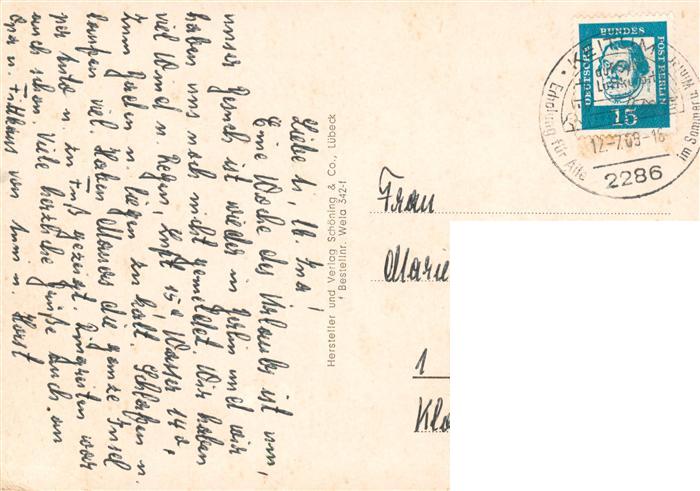 Liebe
Eine Woche des Urlaubs ist um,
unser Besuch ist wieder in Berlin und wir
haben uns noch nicht gemeldet. Wir haben
viel Wind u. Regen, Luft 15° Wasser 14°,
zum Baden u. liegen zu kalt. Schlafen u.
laufen viel. Haben Monos die ganze Insel
per Auto u. zu Fuß gezeigt. war
auch schon Viele herzliche Grüße Euch, an
Opa u. von u. Horst
Hersteller und Verlag Schöning & Co., Lübeck
Bestellnr. Wela 342-f
DEUTSCHE BUNDES POST BERLIN
15
Erholung für Alle
im Sommer u. Winter
12.-7.68-16
2286
Frau
Marie
1
Klo